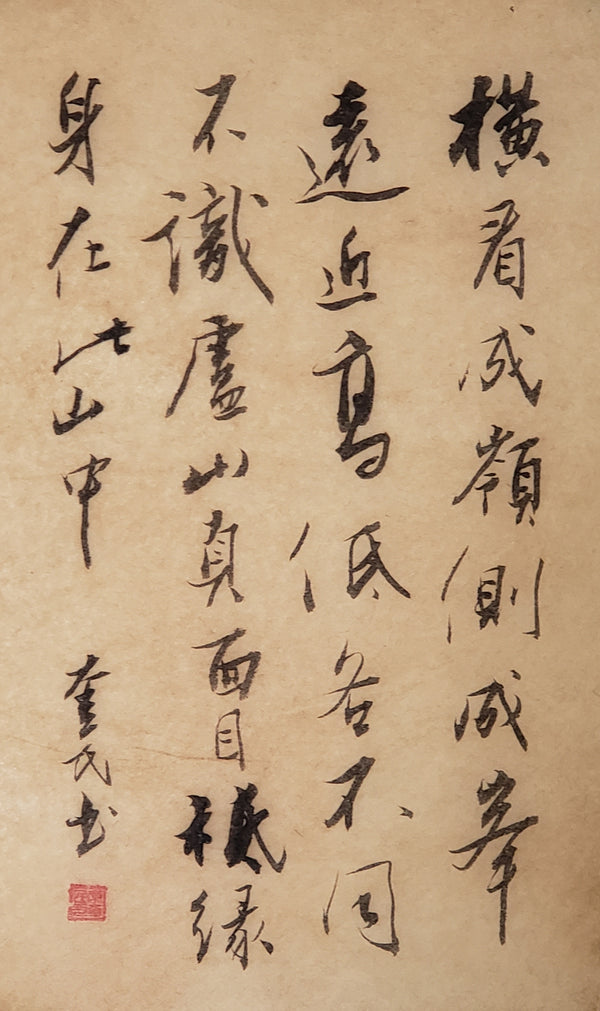 橫看成嶺側成峯
遠近高低各不同
不識廬山真面目祗緣
身在此山中
奎民書